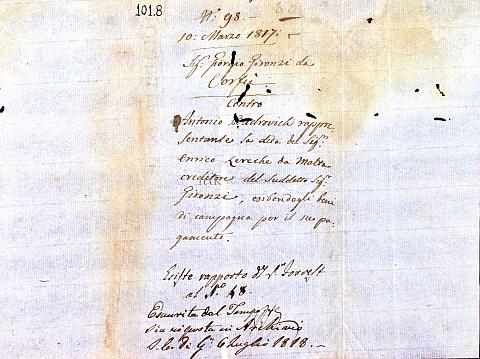 101.8
N: 98. -
10: Marzo 1817: -
Sig: Giorgio Gironzi da
Corfù
Contro
Antonio rappre
sentante la dita del Sig.
Enrico Lereche da Malta
creditore del suddetto Sig.
Gironzi, esibendogli beni
di campagna per il suo pa
gamento.
Esiste rapporto
al N.º 48.
Esaurita dal Tempo
sia riposta in Archivio
6 Luglio 1818. -